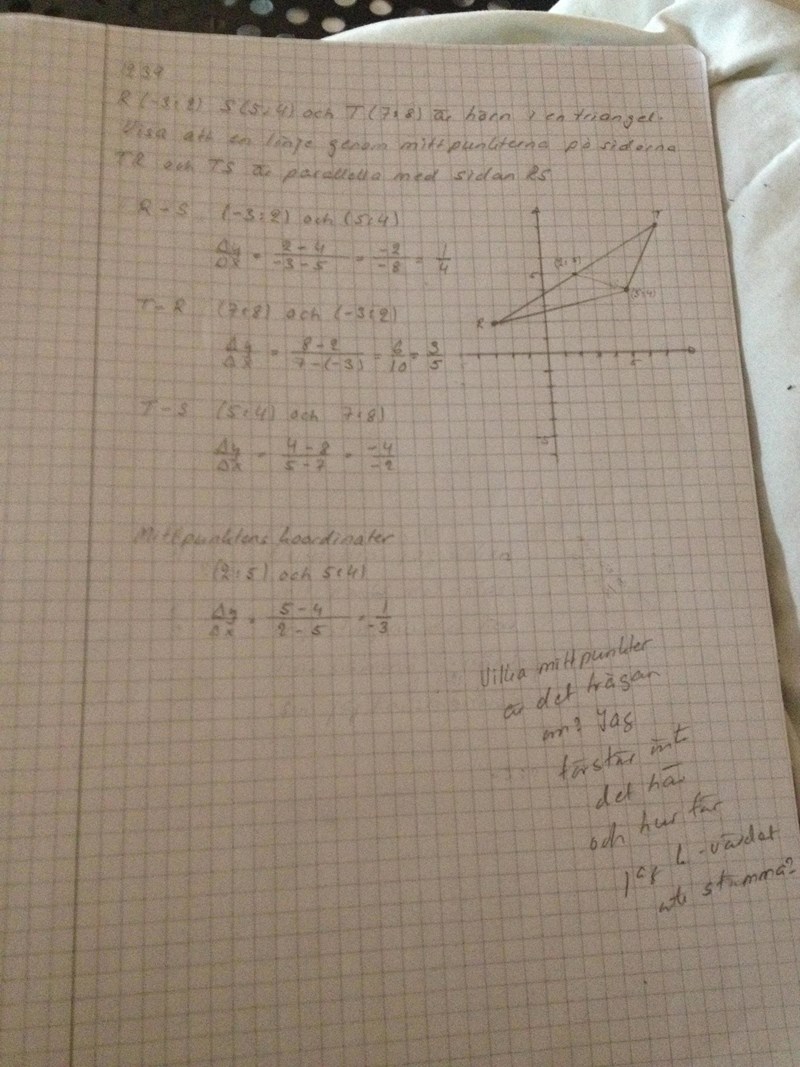 1239
R(-3;2) S(5;4) och T(7;8) är hörn i en triangel.
Visa att en linje genom mittpunkterna på siderna
TR och TS är parallella med sidan RS
R-S (-3;2) och (5;4)
Δy/Δx = 2-4/-3-5 = -2/-8 = 1/4
T-R (7;8) och (-3;2)
Δy/Δx = 8-2/7-(-3) = 6/10 = 3/5
T-S (5;4) och 7;8)
Δy/Δx = 4-8/5-7 = -4/-2
T
5
(5;4)
R
5
-5
Mittpunktens koordinater
(2;5) och 5;4)
Δy/Δx = 5-4/2-5 = 1/-3
Vilka mittpunkter
är det frågan
om? Jag
förstår int
det här
och hur får
jag k-värdet
att stämma?